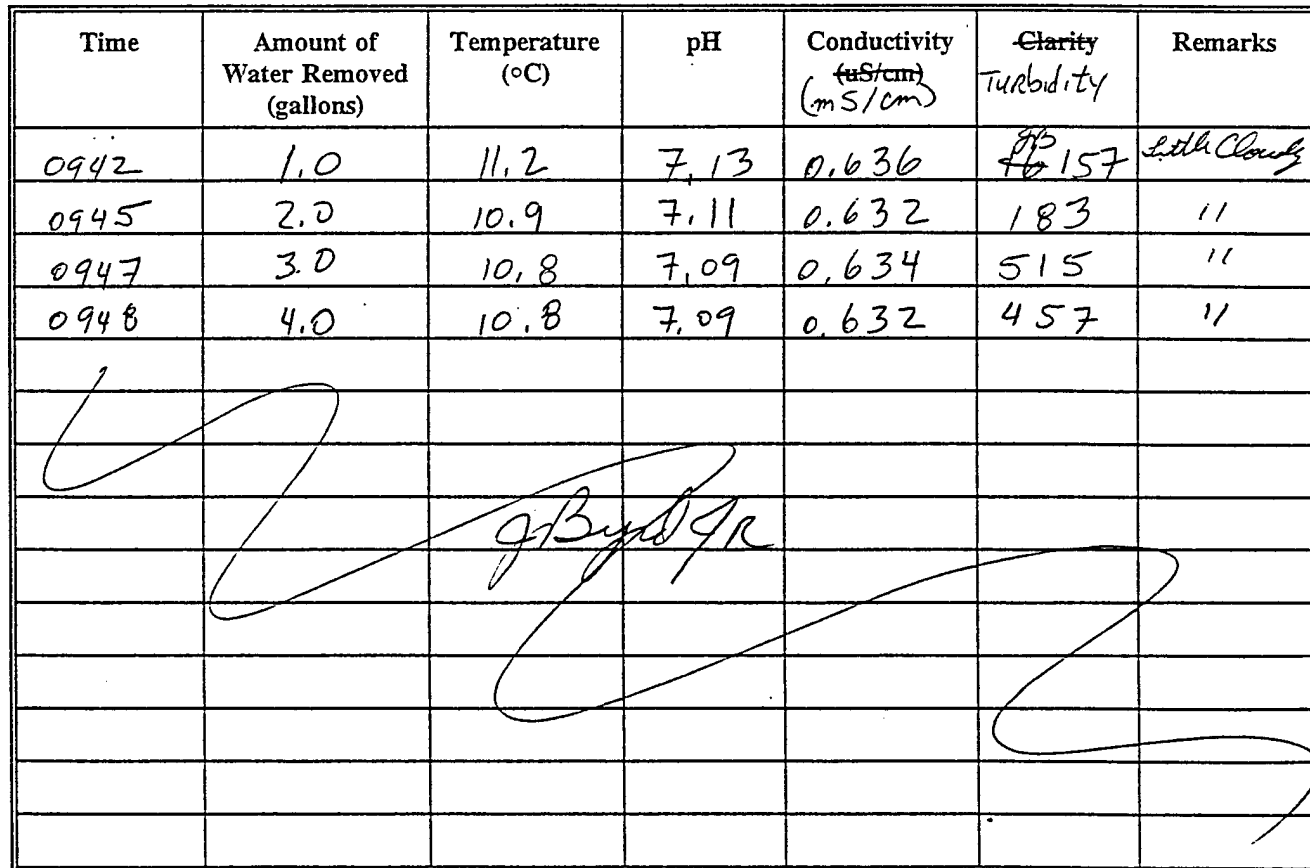 Time Amount of Water Removed (gallons) Temperature (°C) pH Conductivity (uS/cm) (mS/cm) Clarity TURbidity Remarks
0942 1.0 11.2 7.13 0.636 JB 157 Little Cloudy
0945 2.0 10.9 7.11 0.632 183 "
0947 3.0 10.8 7.09 0.634 515 "
0948 4.0 10.8 7.09 0.632 457 "
JByrd JR